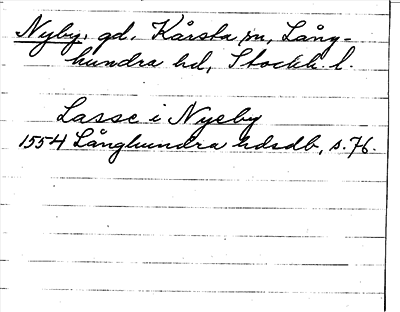 Nyby, gd, Kårsta sn, Lång-
hundra hd, Stockh. l.
Lasse i Nyeby
1554 Långhundra hdsdb, s. 76.